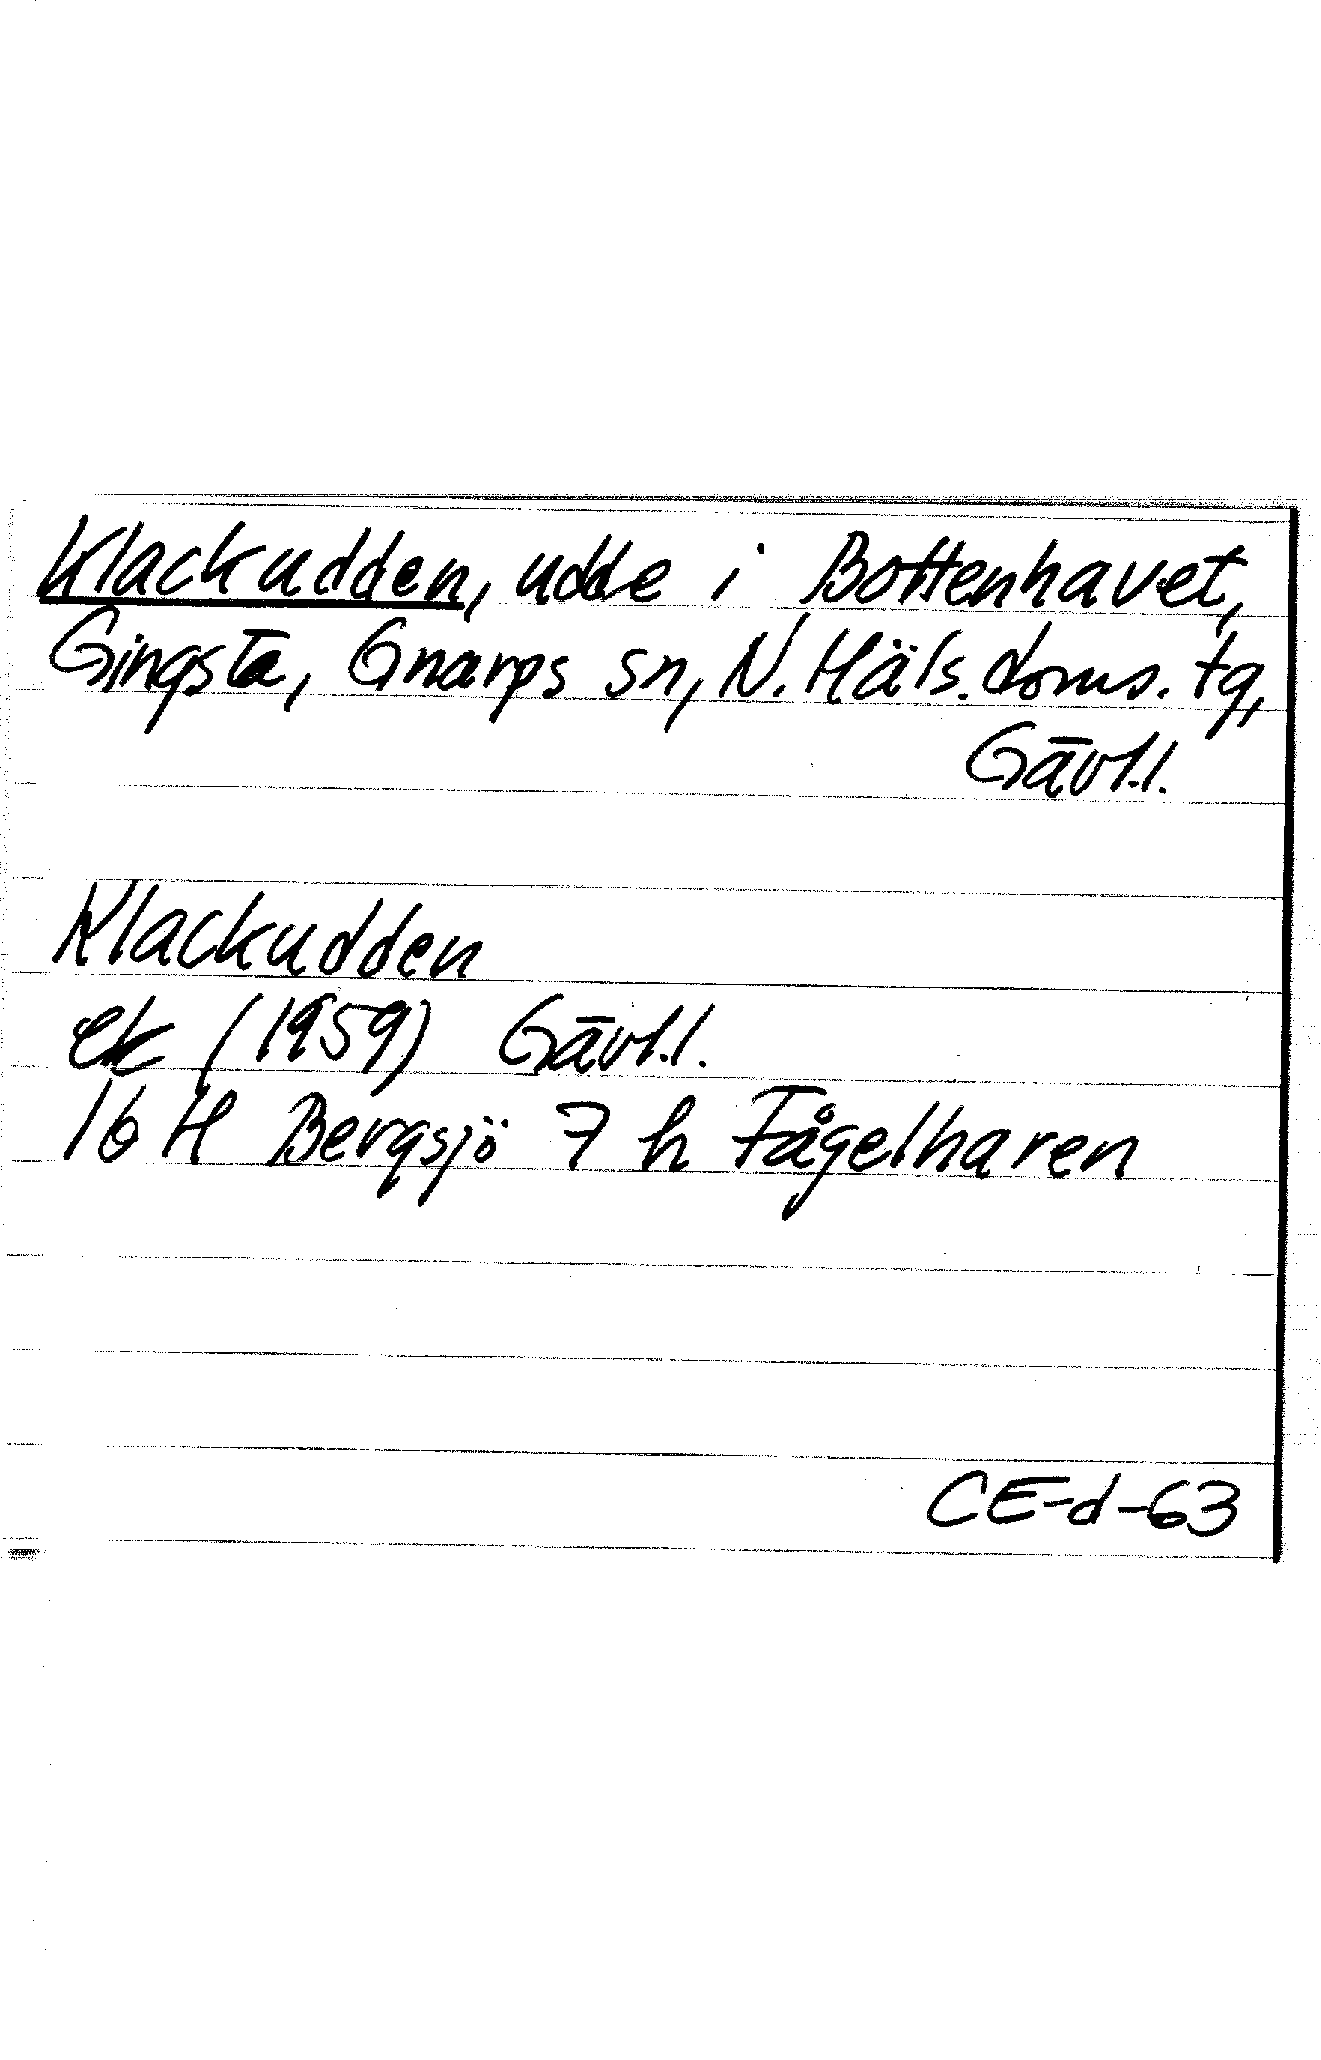 Klackudden, udde i Bottenhavet,
Gingsta, Gnarps sn, N. Häls. doms. tg,
Gävl.l.
Klackudden
ek (1959) Gävl.l.
16 H Bergsjö 7 h Fågelharen
CE-d-63